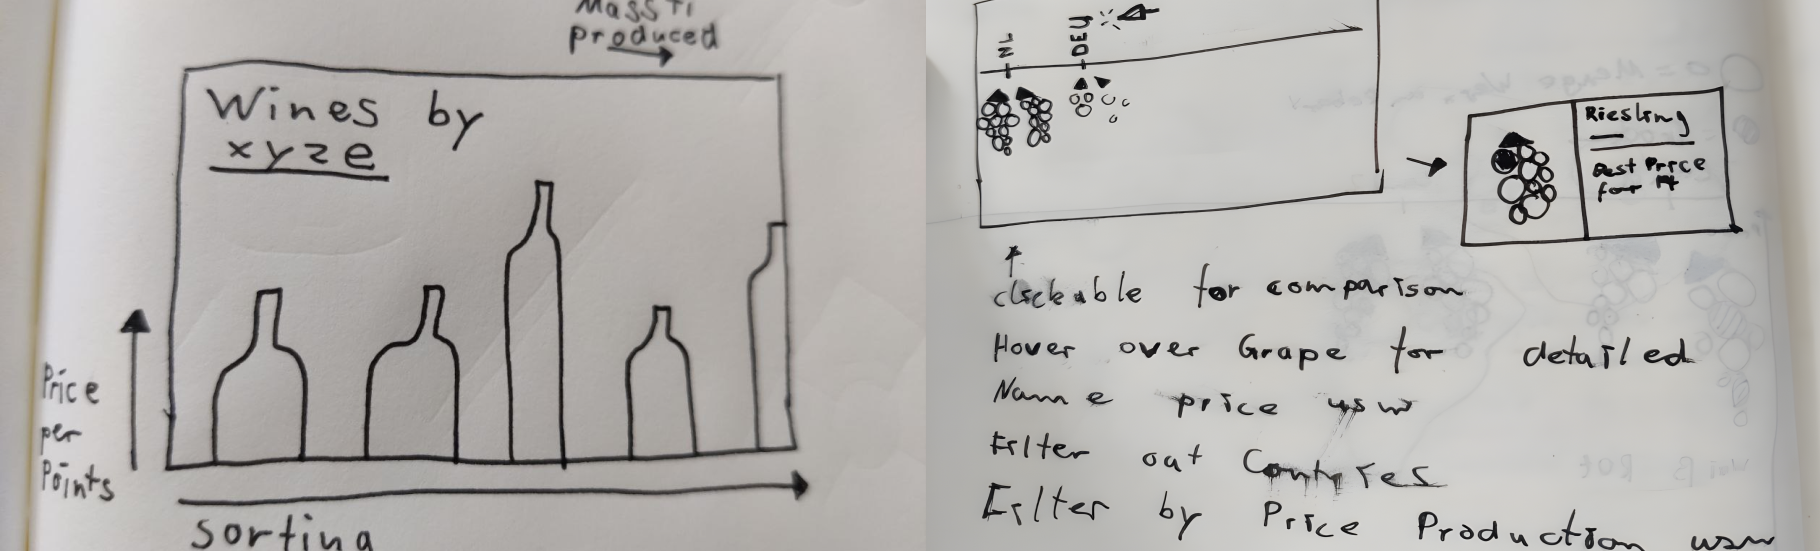 Mass
produced
Wines by
xyze
Price
per
Points
sorting
NL
DEU
Riesling
Best Price
for
clickable for comparison
Hover over Grape for detailed
Name price usw
Filter out Contries
Filter by Price Production usw